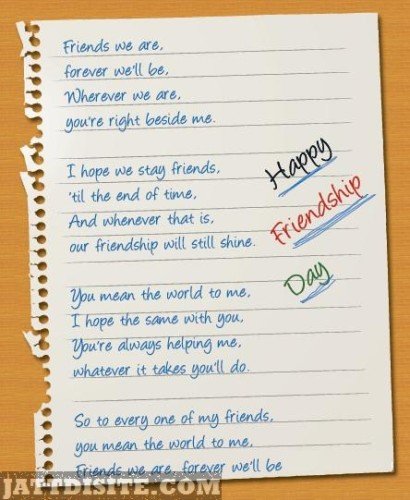 Friends we are,
forever we'll be,
Wherever we are,
you're right beside me.
I hope we stay friends,
'til the end of time,
And whenever that is,
our friendship will still shine.
Happy
Friendship
Day
You mean the world to me,
I hope the same with you,
You're always helping me,
whatever it takes you'll do.
So to every one of my friends,
you mean the world to me,
Friends we are, forever we'll be
JATTDISITE.COM